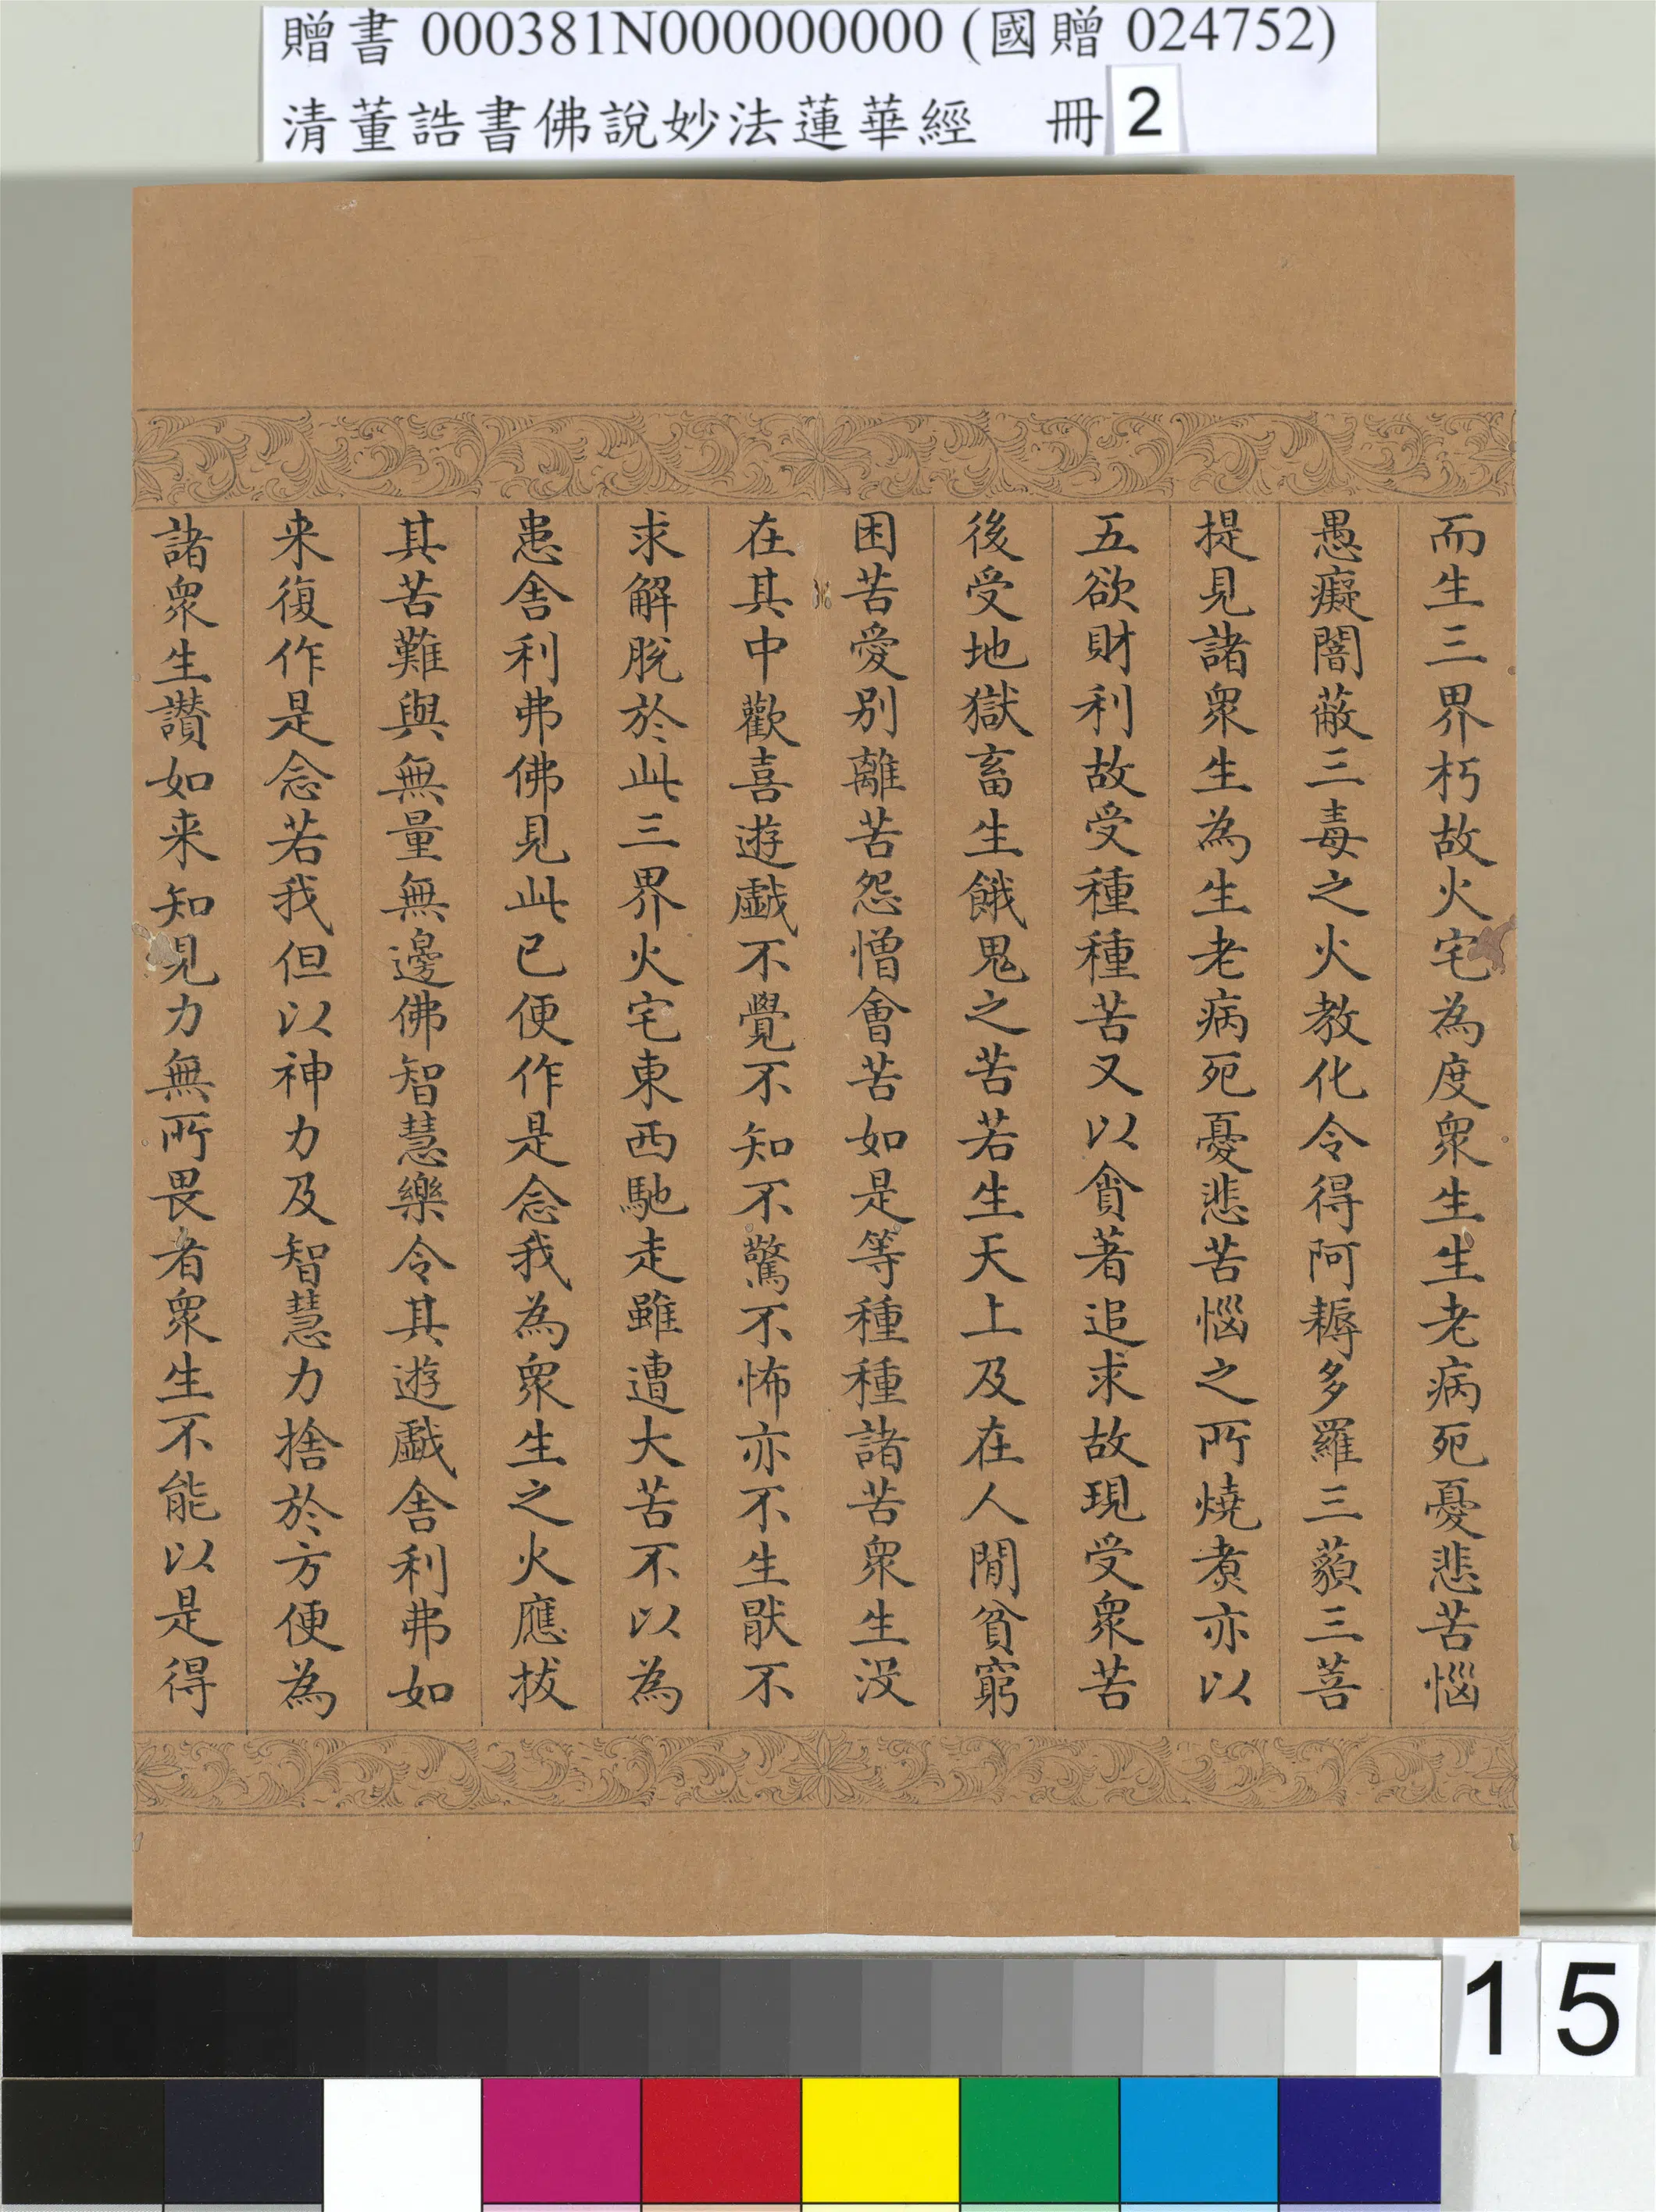 贈書 000381N000000000 (國贈 024752)
清董誥書佛說妙法蓮華經 冊 2
而生三界朽故火宅為度眾生生老病死憂悲苦惱
愚癡闇蔽三毒之火教化令得阿耨多羅三藐三菩
提見諸眾生為生老病死憂悲苦惱之所燒煮亦以
五欲財利故受種種苦又以貪著追求故現受眾苦
後受地獄畜生餓鬼之苦若生天上及在人間貧窮
困苦愛別離苦怨憎會苦如是等種種諸苦眾生沒
在其中歡喜遊戲不覺不知不驚不怖亦不生厭不
求解脫於此三界火宅東西馳走雖遭大苦不以為
患舍利弗佛見此已便作是念我為眾生之火應拔
其苦難與無量無邊佛智慧樂令其遊戲舍利弗如
来復作是念若我但以神力及智慧力捨於方便為
諸眾生讚如来知見力無所畏者眾生不能以是得
15